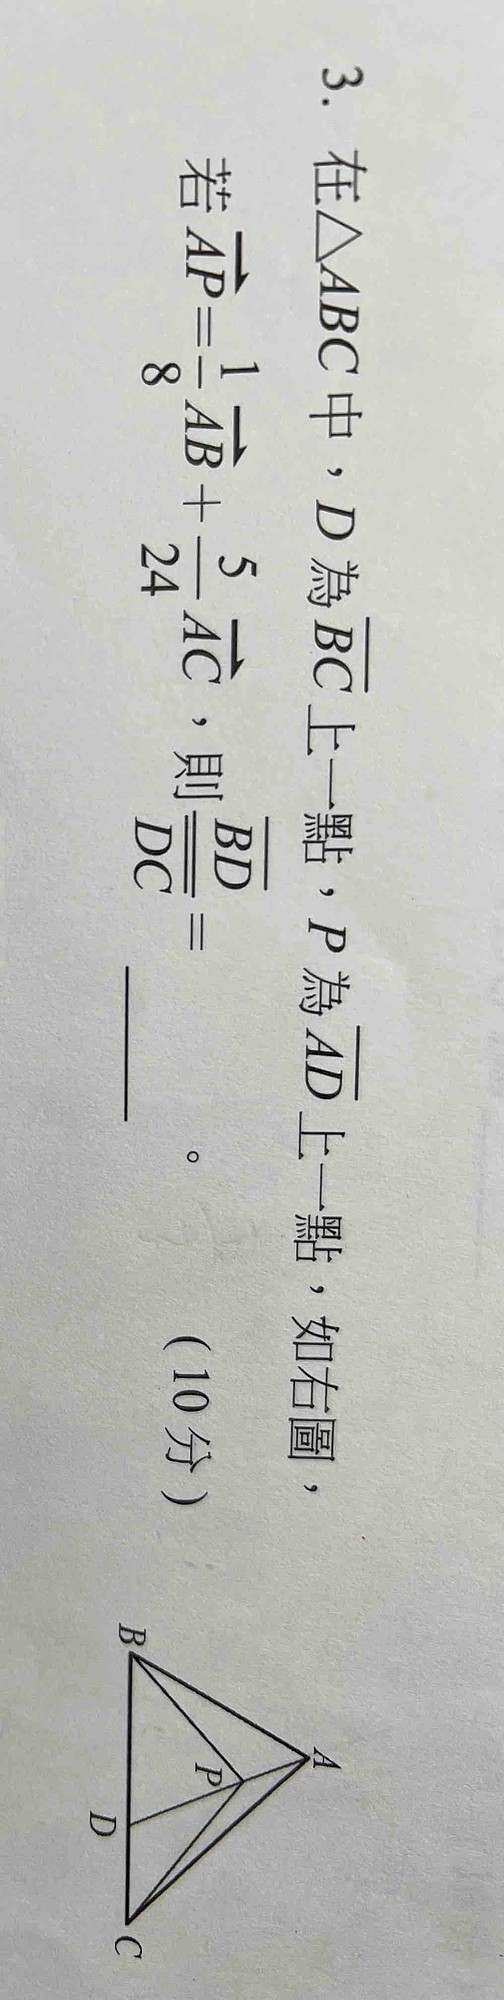 3. 在△ABC中，D為\overline{BC}上一點，P為\overline{AD}上一點，如右圖，
若\overrightarrow{AP}=\frac{1}{8}\overrightarrow{AB}+\frac{5}{24}\overrightarrow{AC}，則\frac{\overline{BD}}{\overline{DC}}=______。（10分）
A
P
B
D
C